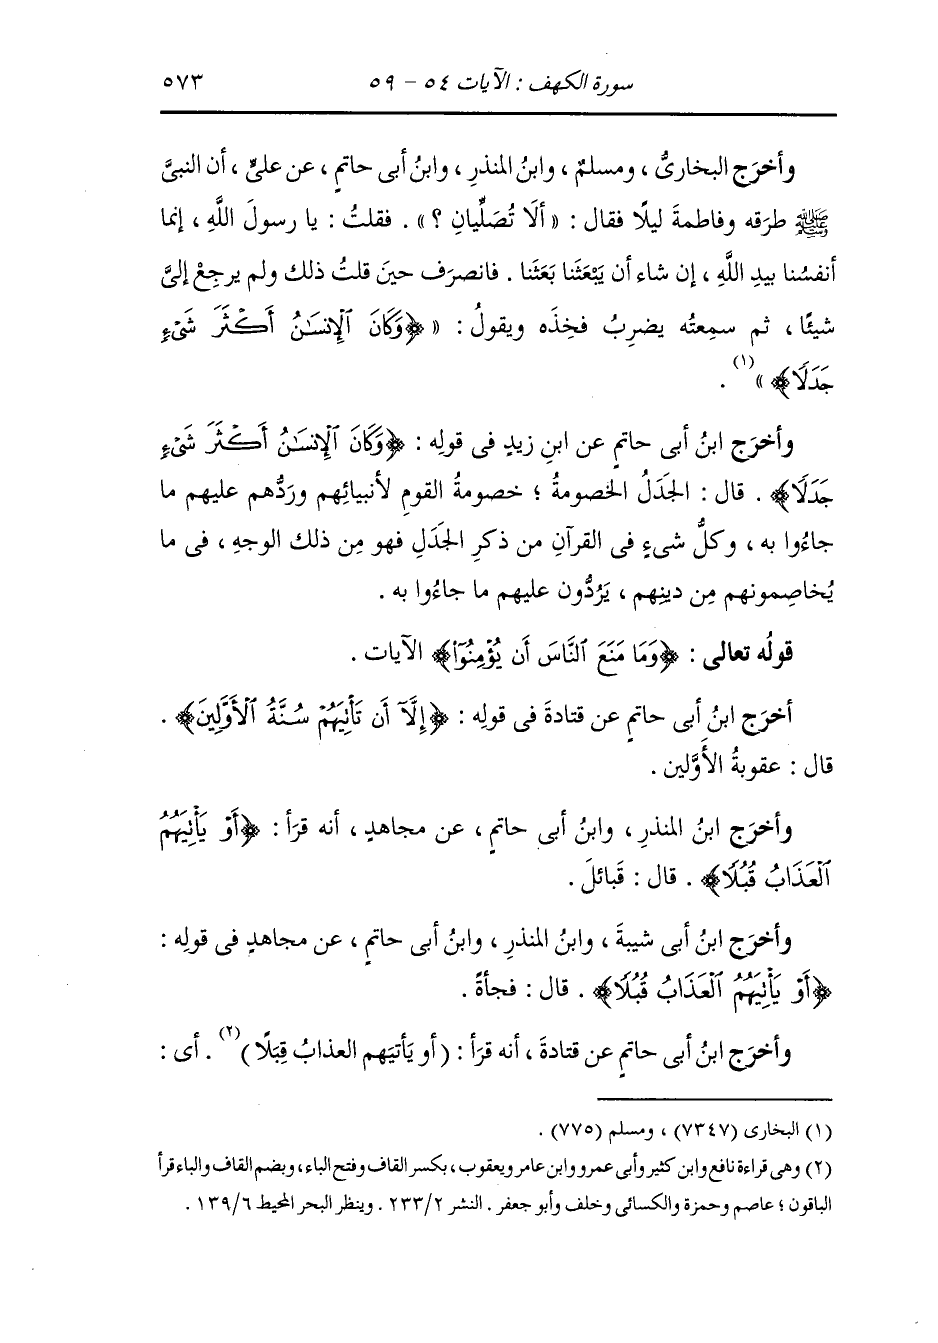 سورة الكهف : الآيات ٥٤ - ٥٩ ٥٧٣
وأخرَج البخارىُّ ، ومسلمٌ ، وابنُ المنذرِ ، وابنُ أبى حاتمٍ ، عن علىٍّ ، أن النبىَّ
ﷺ طرَقه وفاطمةَ ليلًا فقال : « ألَا تُصَلِّيانِ ؟ » . فقلتُ : يا رسولَ اللَّهِ ، إنما
أنفسُنا بيدِ اللَّهِ ، إن شاء أن يَبْعَثَنا بَعَثَنا . فانصرَف حينَ قلتُ ذلك ولم يرجِعْ إلىَّ
شيئًا ، ثم سمِعتُه يضرِبُ فخِذَه ويقولُ : « ﴿وَكَانَ ٱلْإِنسَٰنُ أَكْثَرَ شَىْءٍ
جَدَلًا﴾ »(١) .
وأخرَج ابنُ أبى حاتمٍ عن ابنِ زيدٍ فى قولِه : ﴿وَكَانَ ٱلْإِنسَٰنُ أَكْثَرَ شَىْءٍ
جَدَلًا﴾ . قال : الجَدَلُ الخصومةُ ؛ خصومةُ القومِ لأنبيائِهم وردُّهم عليهم ما
جاءُوا به ، وكلُّ شىءٍ فى القرآنِ من ذكرِ الجَدَلِ فهو مِن ذلك الوجهِ ، فى ما
يُخاصِمونهم مِن دينِهم ، يَرُدُّون عليهم ما جاءُوا به .
قولُه تعالى : ﴿وَمَا مَنَعَ ٱلنَّاسَ أَن يُؤْمِنُوٓا۟﴾ الآيات .
أخرَج ابنُ أبى حاتمٍ عن قتادةَ فى قولِه : ﴿إِلَّآ أَن تَأْتِيَهُمْ سُنَّةُ ٱلْأَوَّلِينَ﴾ .
قال : عقوبةُ الأَوَّلين .
وأخرَج ابنُ المنذرِ ، وابنُ أبى حاتمٍ ، عن مجاهدٍ ، أنه قرَأ : ﴿أَوْ يَأْتِيَهُمُ
ٱلْعَذَابُ قُبُلًا﴾ . قال : قَبائلَ .
وأخرَج ابنُ أبى شيبةَ ، وابنُ المنذرِ ، وابنُ أبى حاتمٍ ، عن مجاهدٍ فى قولِه :
﴿أَوْ يَأْتِيَهُمُ ٱلْعَذَابُ قُبُلًا﴾ . قال : فجأةً .
وأخرَج ابنُ أبى حاتمٍ عن قتادةَ ، أنه قرَأ : ( أو يَأتيَهم العذابُ قِبَلًا )(٢) . أى :
(١) البخارى (٧٣٤٧) ، ومسلم (٧٧٥) .
(٢) وهى قراءة نافع وابن كثير وأبى عمرو وابن عامر ويعقوب ، بكسر القاف وفتح الباء ، وبضم القاف والباء قرأ
الباقون ؛ عاصم وحمزة والكسائى وخلف وأبو جعفر . النشر ٢/ ٢٣٣ . وينظر البحر المحيط ٦/ ١٣٩ .